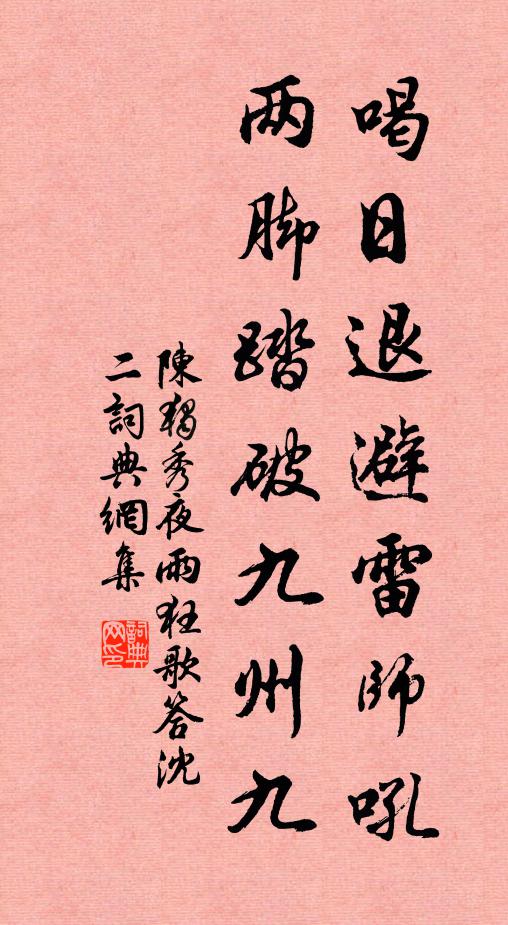 喝日退避雷師吼
两脚踏破九州九
陳獨秀夜雨狂歌答沈
二詞典網集
詞典网印